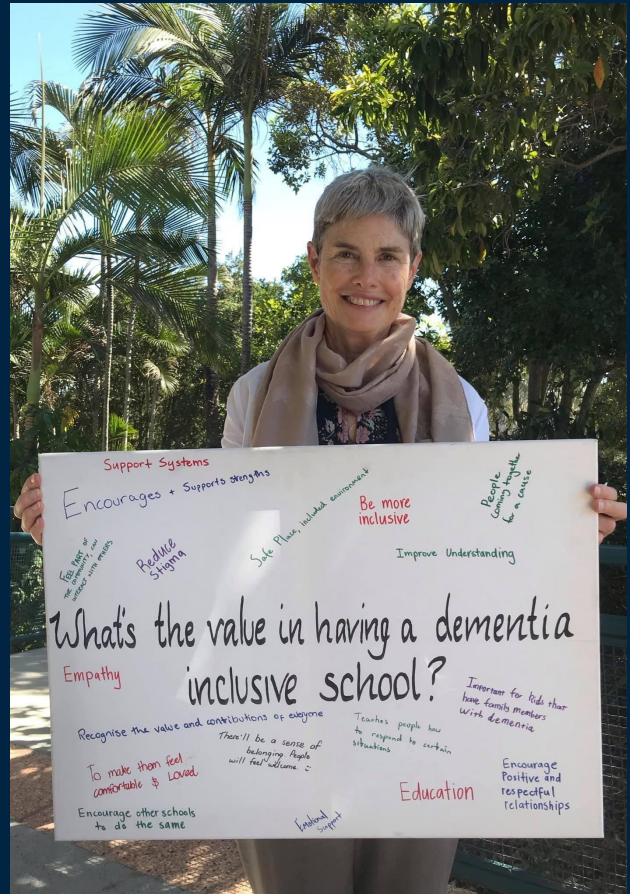 Support Systems
Encourages + Supports strengths
Safe Place, included environment
Be more
inclusive
People
coming together
for a cause
FEEL PART OF
THE COMMUNITY, CAN
INTERACT WITH OTHERS
Reduce
Stigma
Improve Understanding
What's the value in having a dementia
inclusive school?
Empathy
Important for kids that
have family members
with dementia
Recognise the value and contributions of everyone
There'll be a sense of
belonging. People
will feel welcome :)
Teaches people how
to respond to certain
situations
To make them feel
comfortable & Loved
Education
Encourage
Positive and
respectful
relationships
Encourage other schools
to do the same
Emotional
Support